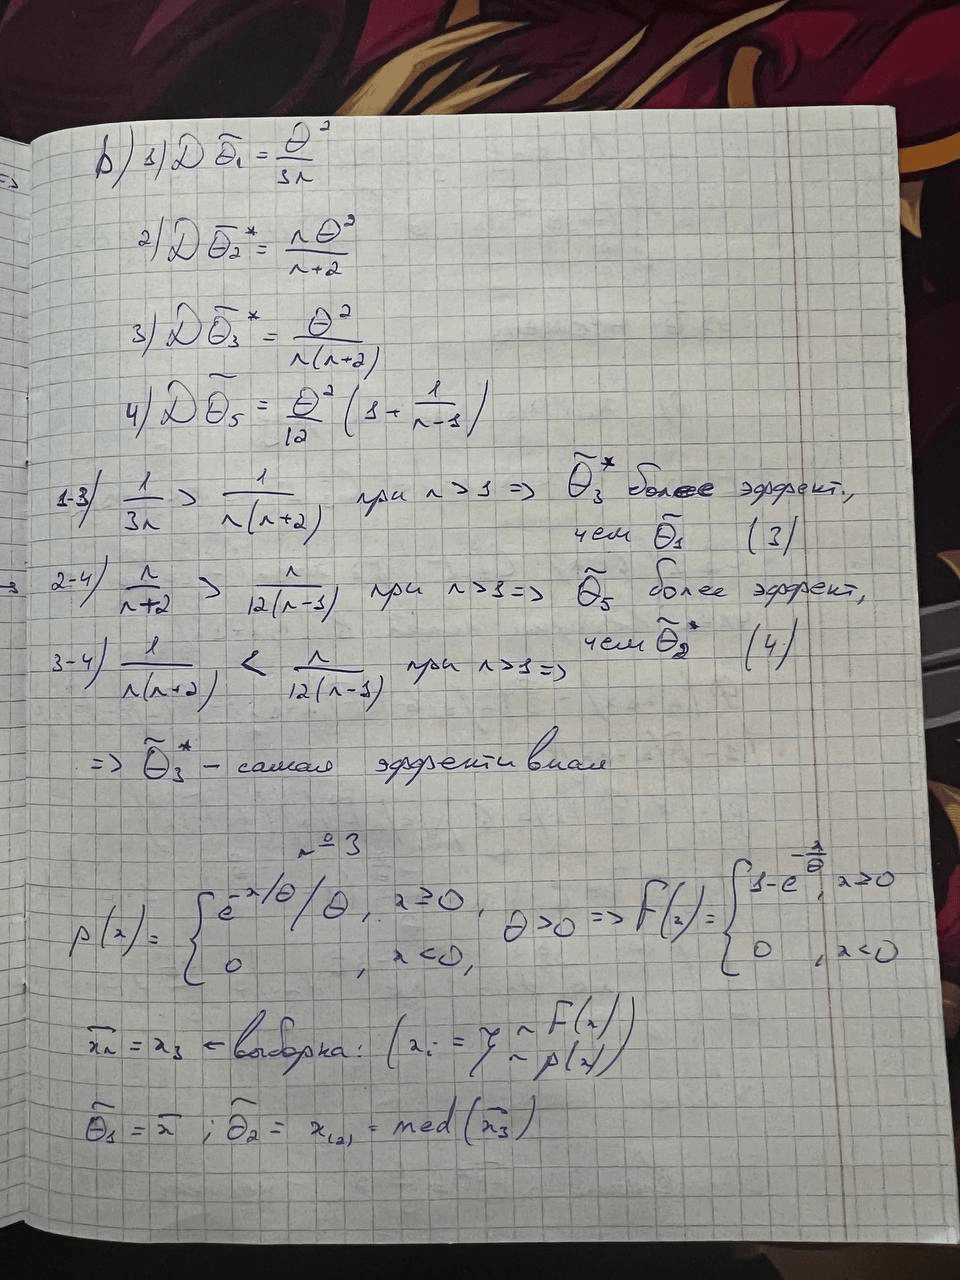 b) 1) D θ̃₁ = θ²/3n
2) D θ̃₂* = nθ²/n+2
3) D θ̃₃* = θ²/n(n+2)
4) D θ̃₅ = θ²/12 (1 + 1/n-1)
1-3) 1/3n > 1/n(n+2) при n > 1 => θ̃₃* более эффект.,
чем θ̃₁ (3)
2-4) n/n+2 > n/12(n-1) при n > 1 => θ̃₅ более эффект,
чем θ̃₂* (4)
3-4) 1/n(n+2) < n/12(n-1) при n > 1 =>
=> θ̃₃* – самая эффективная
№ 3
p(x) = { e^(-x/θ)/θ, x ≥ 0, θ > 0 => F(x) = { 1-e^(-x/θ), x ≥ 0
0, x < 0, 0, x < 0
x⃗ₙ = x₃ ← выборка: (xᵢ = ξ ~ F(x) ~ p(x))
θ̃₁ = x̄ ; θ̃₂ = x₍₂₎ = med(x⃗₃)